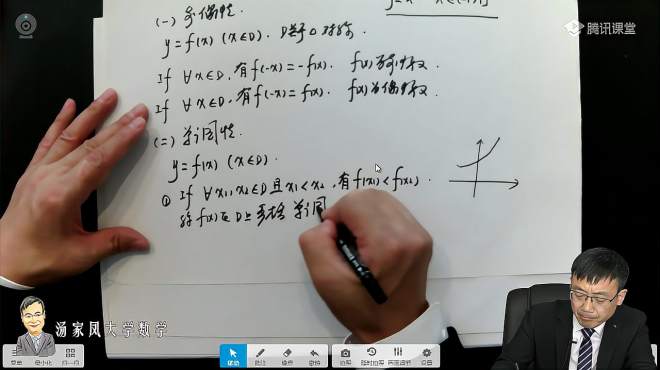 腾讯课堂
(一) 奇偶性.
y=f(x) (x∈D). D关于O对称.
If ∀x∈D, 有f(-x)=-f(x). f(x)奇函数.
If ∀x∈D, 有f(-x)=f(x). f(x)为偶函数.
(二) 单调性.
y=f(x) (x∈D).
① If ∀x₁,x₂∈D且x₁<x₂, 有f(x₁)<f(x₂).
称f(x)在D上严格单调
汤家凤大学数学